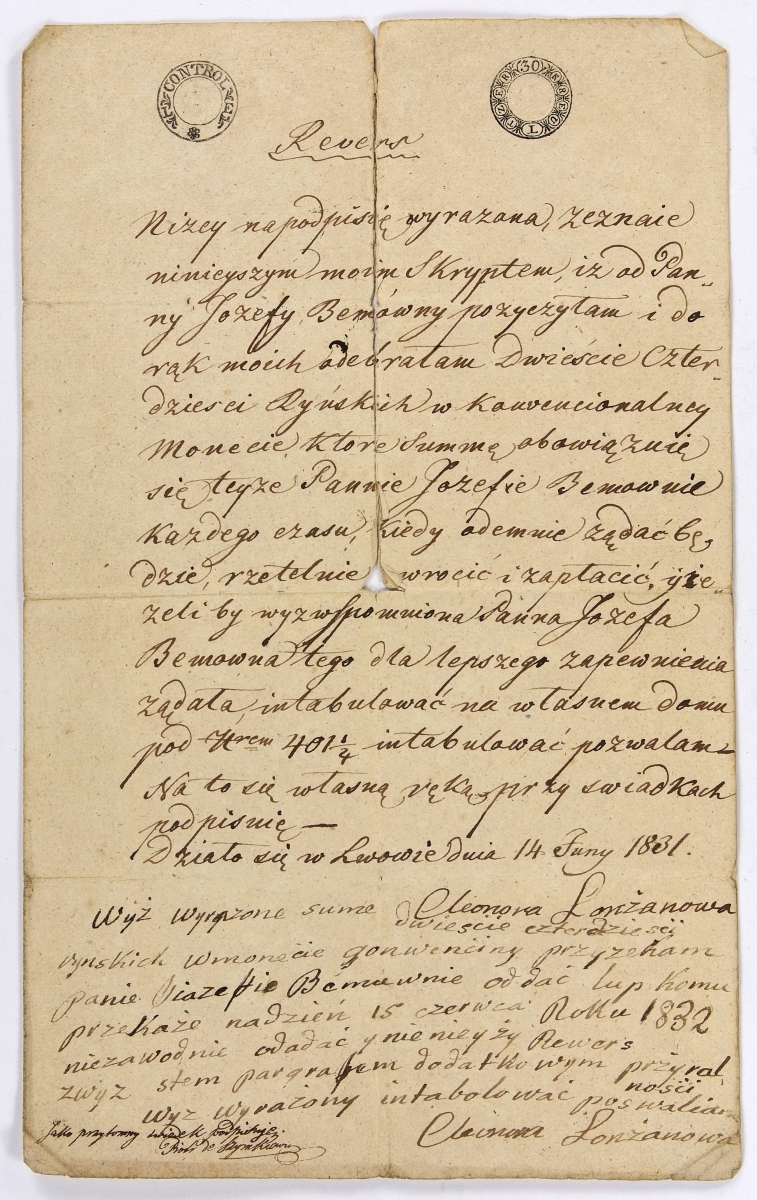 CONTROLE
30 KREUTZER
Revers
Nizey na podpisię wyrazona, zeznaie
ninieyszym moim Skryptem, iz od Pan-
ny Jozefy Bemówny pozyczyłam i do
rąk moich odebrałam Dwieście Czter-
dziesci Ryńskich w Konwencionalney
Monecie, ktore Summę obowiązuię
się teyze Pannie Jozefie Bemownie
Kazdego czasu, kiedy odemnie ządać bę-
dzie, rzetelnie wrocić i zapłacić, ỳie-
zeli by wyzwspomniona Panna Jozefa
Bemowna tego dla lepszego zapewnienia
ządała, intabulować na własnem domu
pod Nrem 401 1/4 intabulować pozwalam –
Na to się własną ręką przy swiadkach
podpisuię —
Działo się w Lwowie dnia 14 Juny 1831.
Eleonora Lonżanowa
Wyż wyrażone sume dwieście czterdzieści
rynskich w monecie gonwenciny przyzekam
panie Jiozefie Bemuwnie oddać lup komu
przekaże nadzień 15 czerwca Roku 1832
niezawodnie odadać ynienieyży Rewers
zwyż stem pargrafem dodatkowym przyna
nośći
wyż wyrażony intabolować poswaliam
Eleonora Lonżanowa
Jako przytomny świadek podpisuję